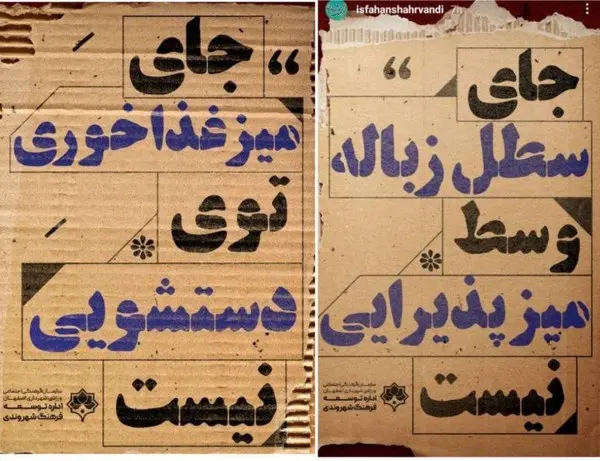 جای
میز غذاخوری
توی
دستشویی
نیست
سازمان فرهنگی اجتماعی
ورزشی شهرداری اصفهان
اداره توسعه
فرهنگ شهروندی
isfahanshahrvandi 7h
جای
سطل زباله
وسط
میز پذیرایی
نیست
سازمان فرهنگی اجتماعی
ورزشی شهرداری اصفهان
اداره توسعه
فرهنگ شهروندی